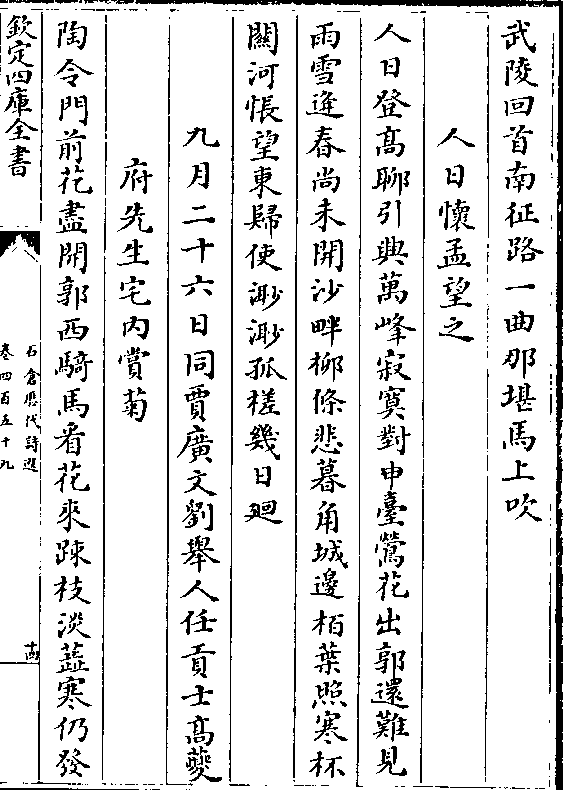 武陵回首南征路一曲那堪馬上吹
人日懷孟望之
人日登高聊引興萬峰寂寞對申臺鶯花出郭還難見
雨雪迎春尚未開沙畔柳條悲暮角城邊柏葉照寒杯
關河悵望東歸使渺渺孤槎幾日廻
九月二十六日同賈廣文劉舉人任貢士高夔
府先生宅内賞菊
陶令門前花盡開郭西騎馬看花來疎枝淡蘂寒仍發
欽定四庫全書
石倉歴代詩選
卷四百五十九
十四